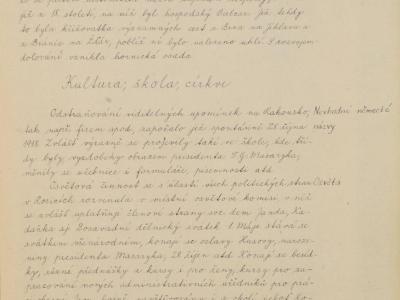 již v 18. století, na níž byl hospodský Balcar. Již tehdy
to byla křižovatka významných cest z Brna na Jihlavu a
z Brna na Zbár, poblíž ní bylo nalezeno uhlí. S rozvojem
dolování vznikla hornická osada.
Kultura, škola, církve
Odstraňování viditelných upomínek na Rakousko, Nevhodné německé
tak např. firem apod., započalo již spontánně 28. října názvy
1918. Zvlášť výrazně se projevily také ve škole, kde tří-
dy byly vyzdobeny obrazem presidenta T.G. Masaryka,
měnily se učebnice i formuláře, písemnosti atd.
Osvětová činnost se s účastí všech politických stran Osvěta
v Rosicích rozvinula v místní osvětové komisi, v níž
se zvlášť uplatňují členové strany soc. dem. Janda, Ka-
daňka aj. Dosavadní dělnický svátek 1. Máje stává se
svátkem všenárodním, konají se oslavy Husovy, naroze-
niny presidenta Masaryka, 28. října atd. Konají se besíd-
ky, různé přednášky a kursy i pro ženy, kursy pro za-
pracování nových administrativních úředníků pro prá-